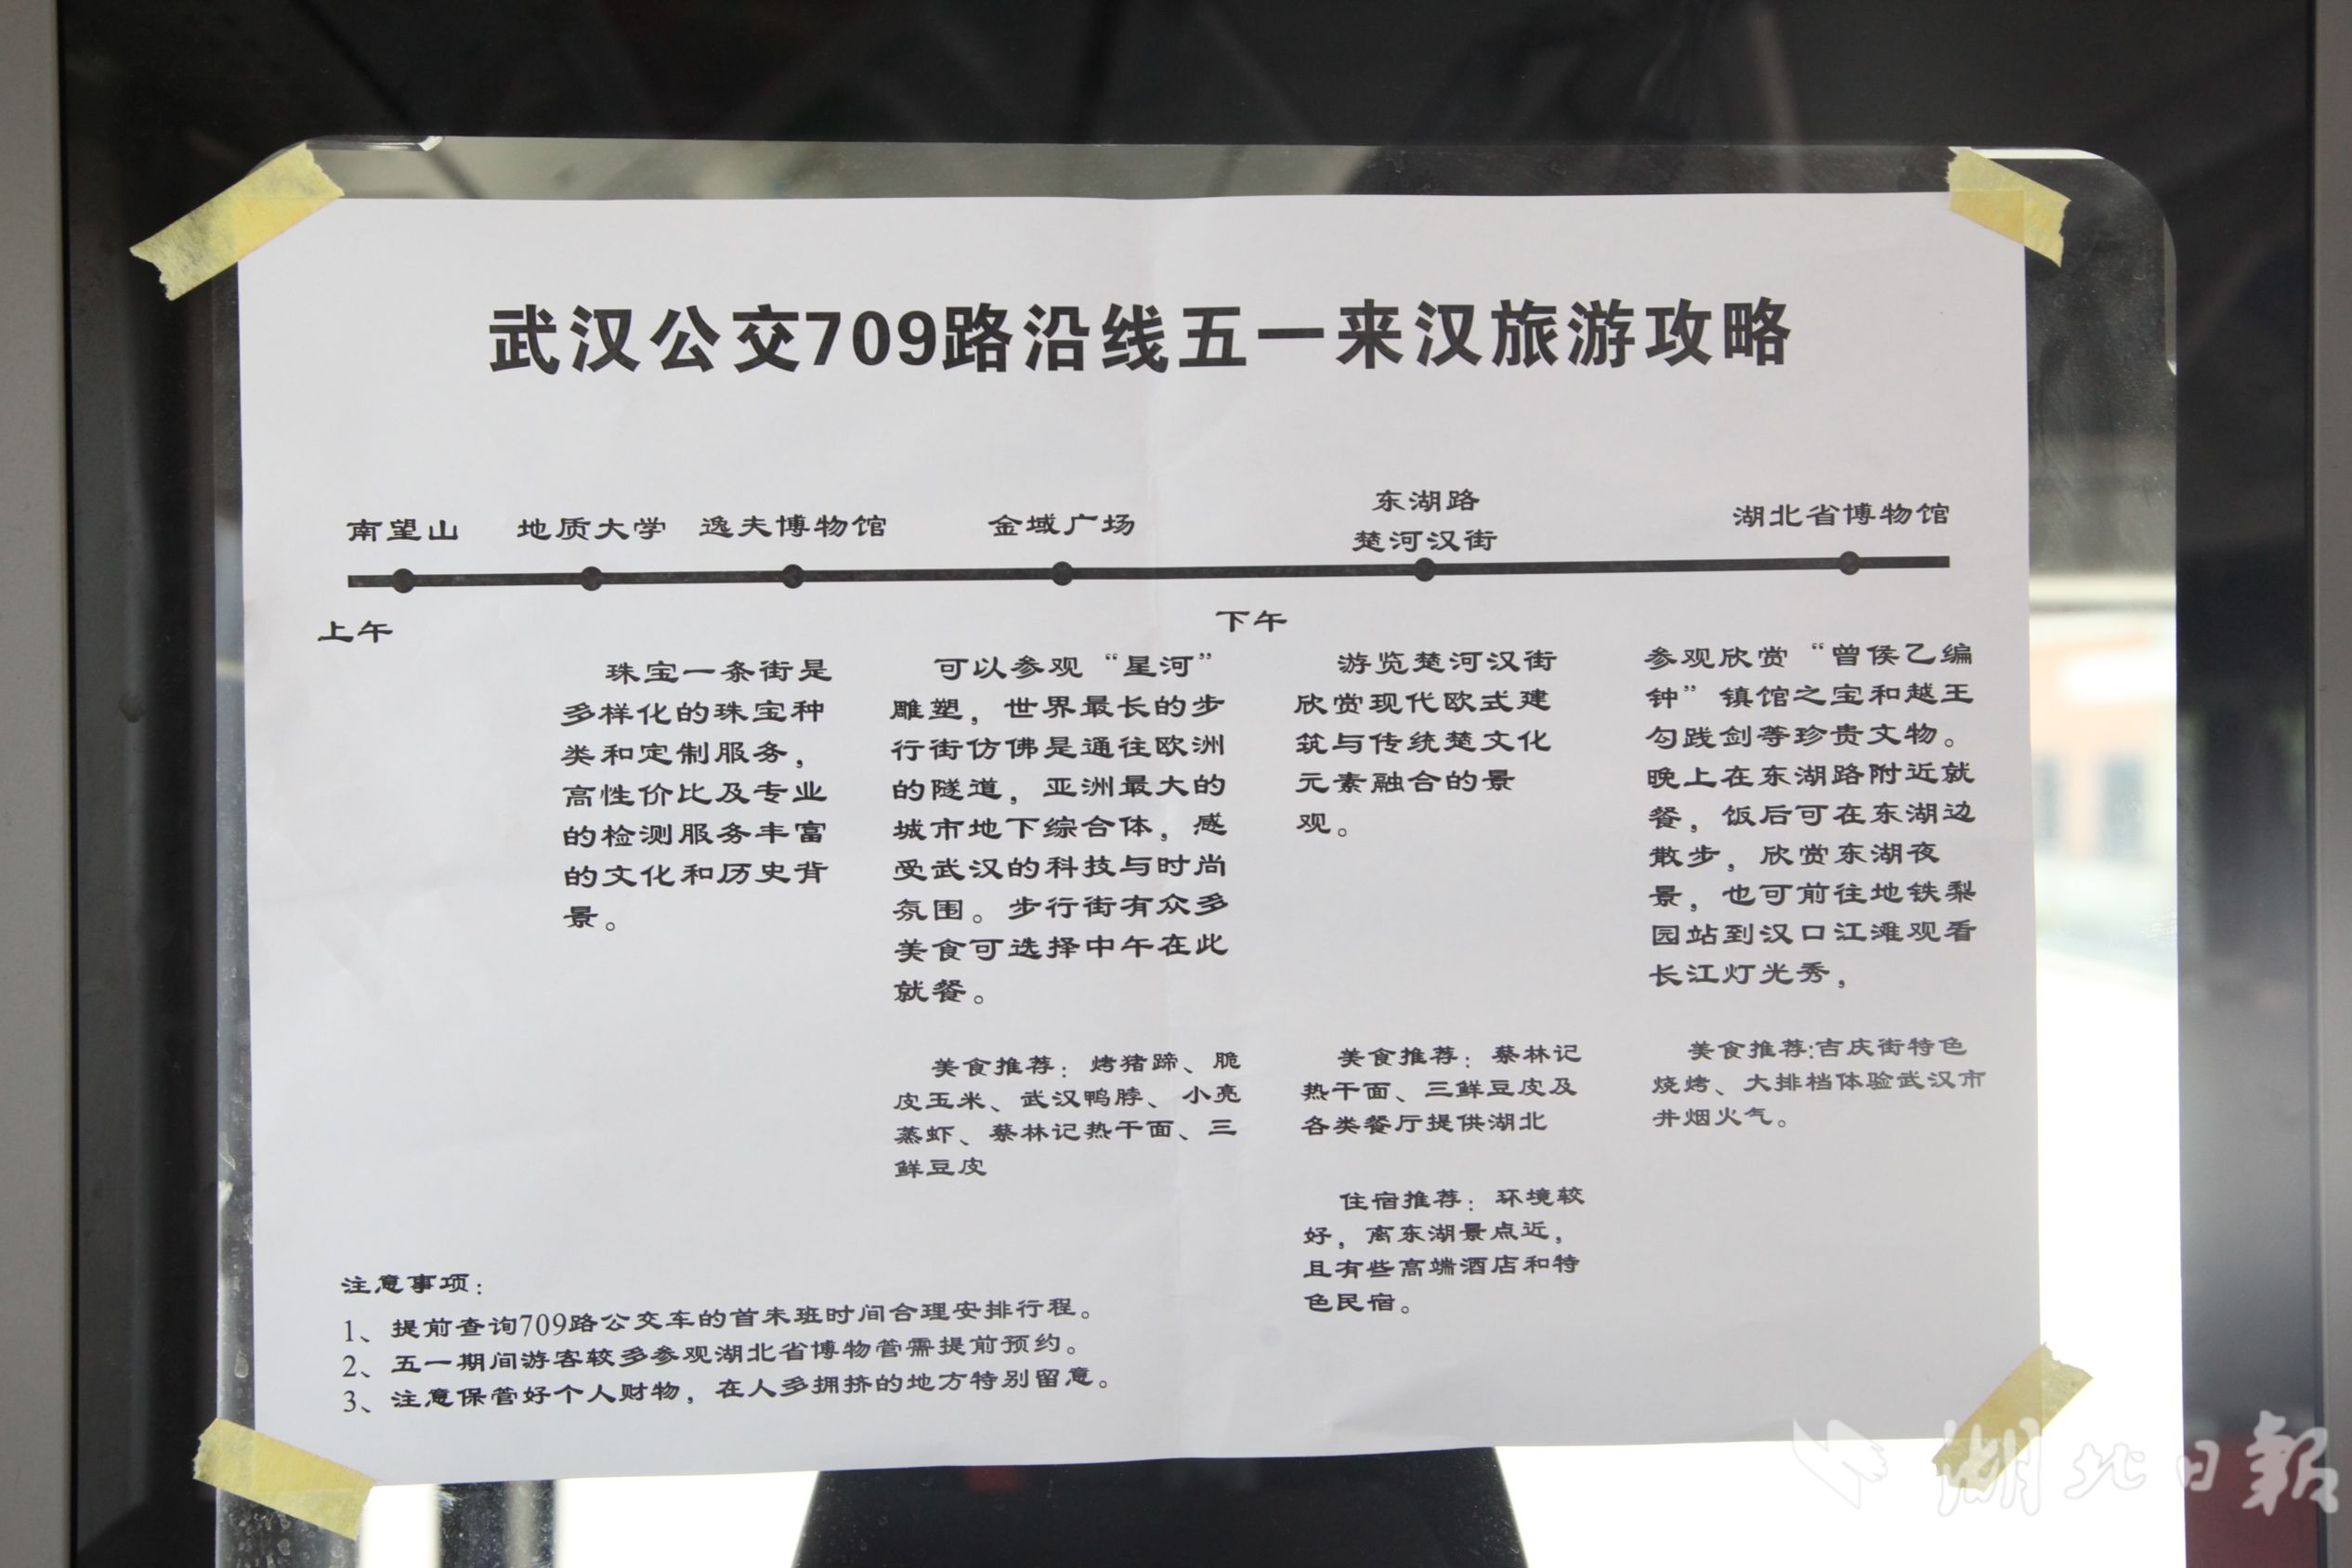 武汉公交709路沿线五一来汉旅游攻略
南望山
地质大学
逸夫博物馆
金域广场
东湖路
楚河汉街
湖北省博物馆
上午
下午
珠宝一条街是
多样化的珠宝种
类和定制服务，
高性价比及专业
的检测服务丰富
的文化和历史背
景。
可以参观“星河”
雕塑，世界最长的步
行街仿佛是通往欧洲
的隧道，亚洲最大的
城市地下综合体，感
受武汉的科技与时尚
氛围。步行街有众多
美食可选择中午在此
就餐。
美食推荐：烤猪蹄、脆
皮玉米、武汉鸭脖、小亮
蒸虾、蔡林记热干面、三
鲜豆皮
游览楚河汉街
欣赏现代欧式建
筑与传统楚文化
元素融合的景
观。
美食推荐：蔡林记
热干面、三鲜豆皮及
各类餐厅提供湖北
住宿推荐：环境较
好，离东湖景点近，
且有些高端酒店和特
色民宿。
参观欣赏“曾侯乙编
钟”镇馆之宝和越王
勾践剑等珍贵文物。
晚上在东湖路附近就
餐，饭后可在东湖边
散步，欣赏东湖夜
景，也可前往地铁梨
园站到汉口江滩观看
长江灯光秀，
美食推荐:吉庆街特色
烧烤、大排档体验武汉市
井烟火气。
注意事项：
1、提前查询709路公交车的首末班时间合理安排行程。
2、五一期间游客较多参观湖北省博物管需提前预约。
3、注意保管好个人财物，在人多拥挤的地方特别留意。
湖北日报